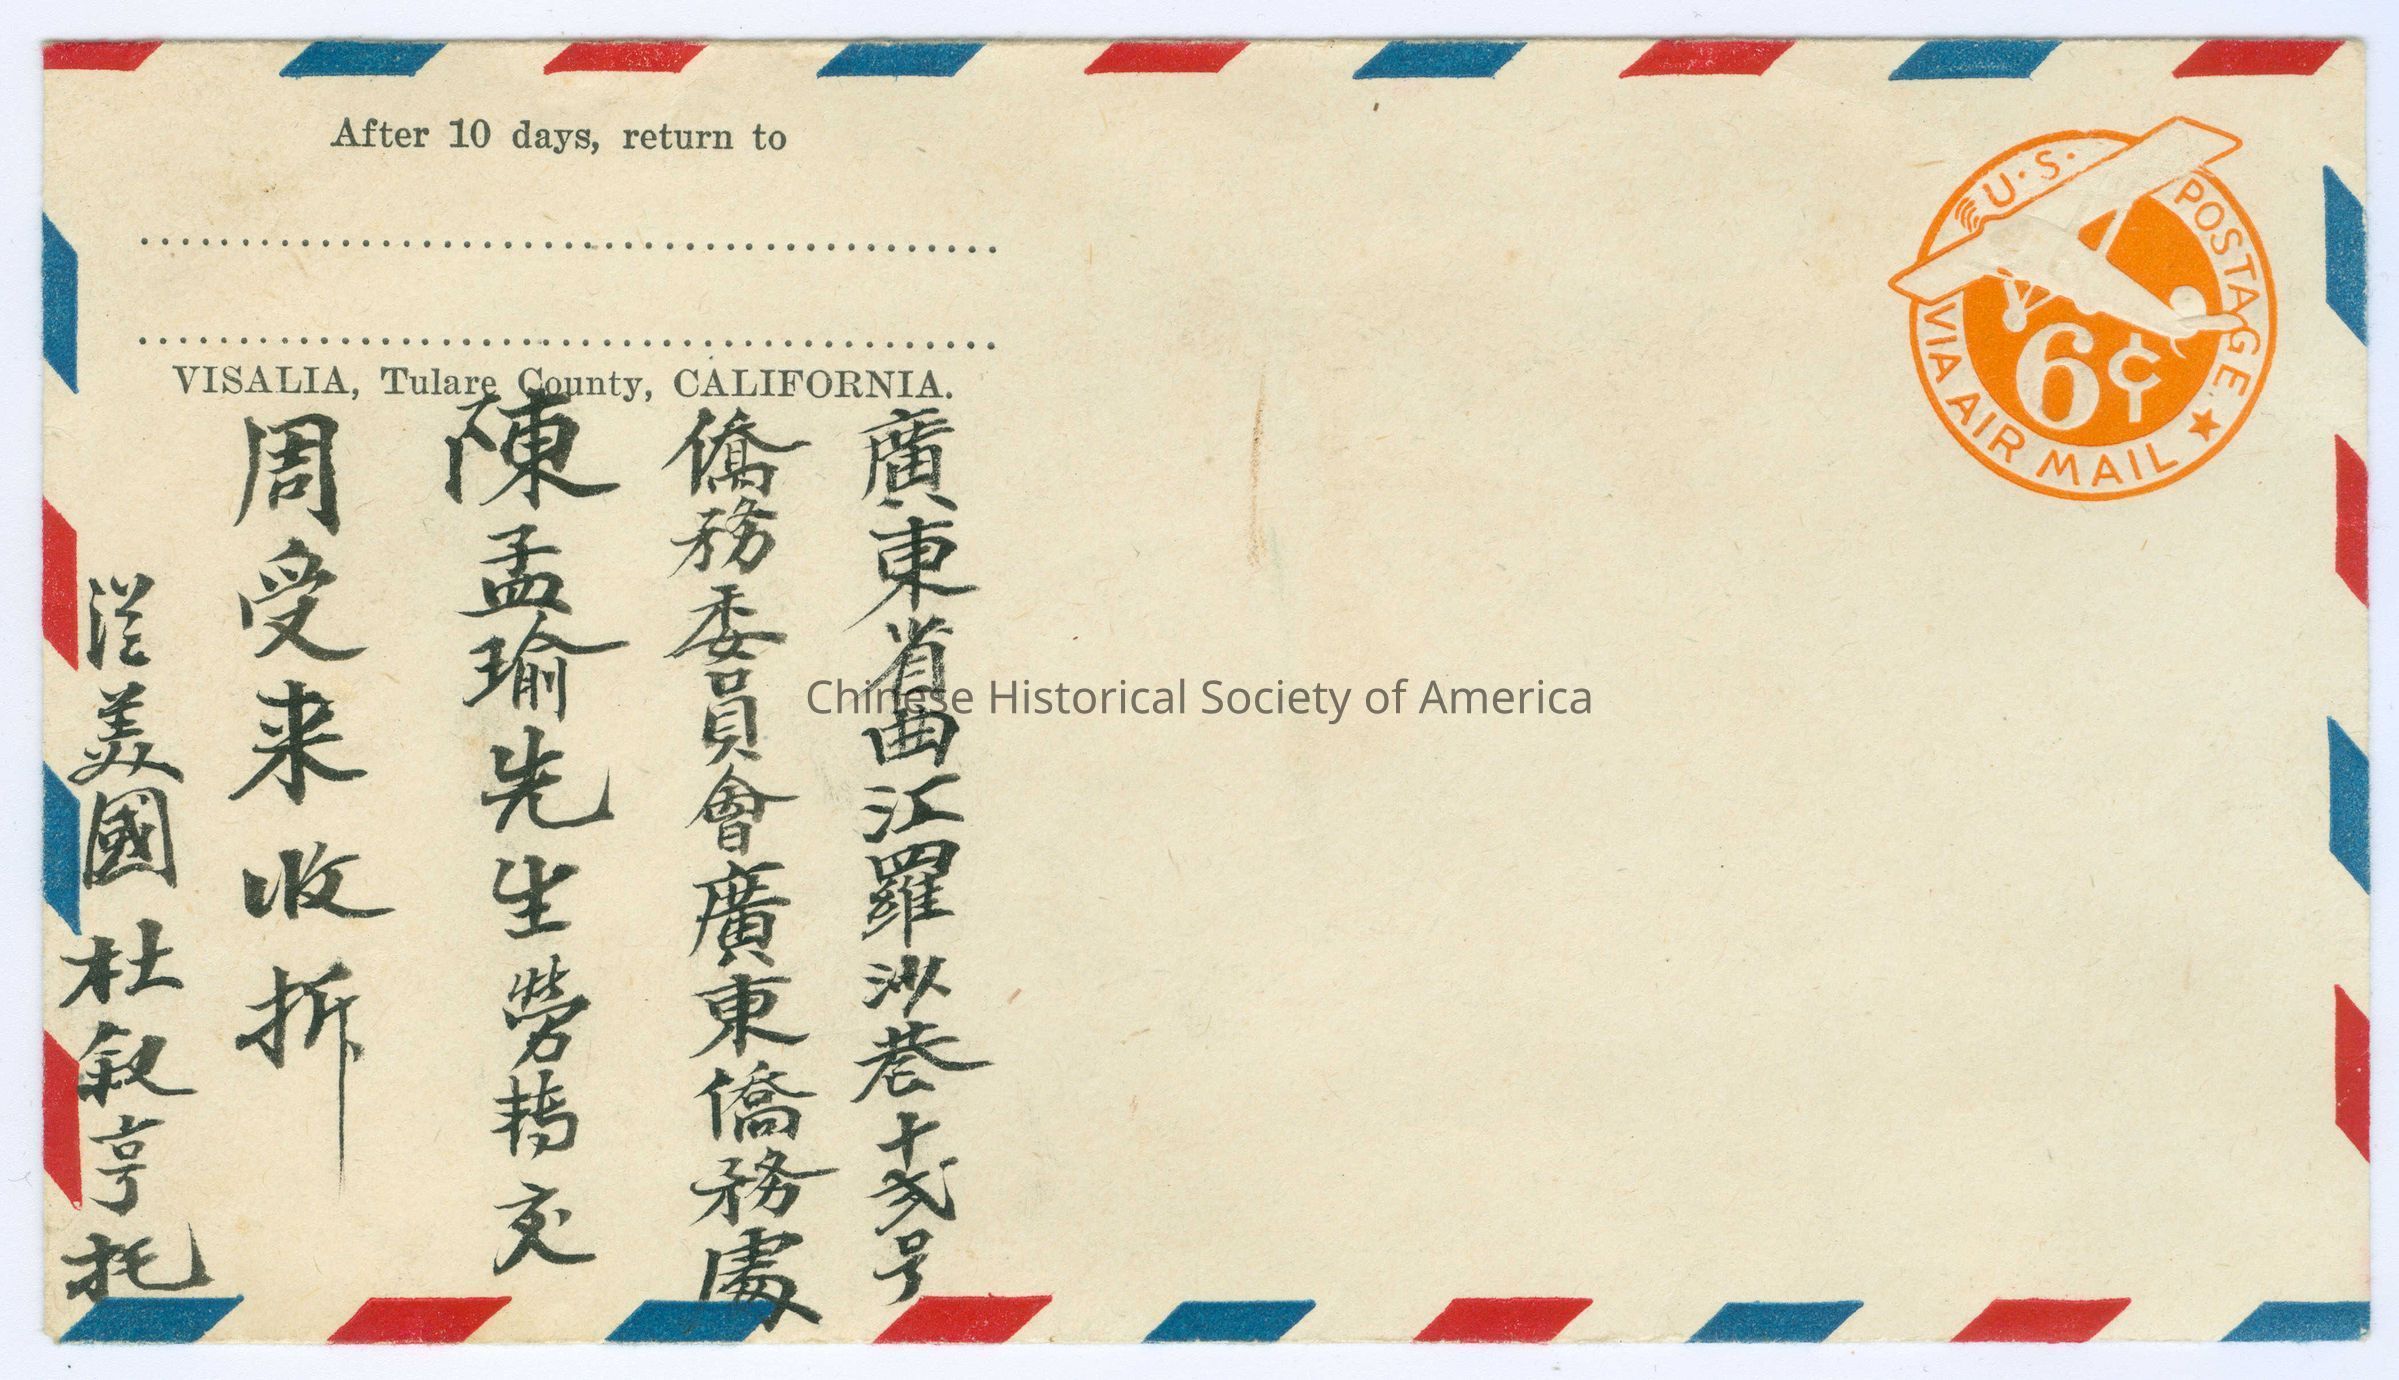 After 10 days, return to
VISALIA, Tulare County, CALIFORNIA.
U.S. POSTAGE
VIA AIR MAIL
6¢
廣東省曲江羅沙巷十弍号
僑務委員會廣東僑務處
陳孟瑜先生勞轉交
周受来收拆
從美國杜叙亨托
Chinese Historical Society of America